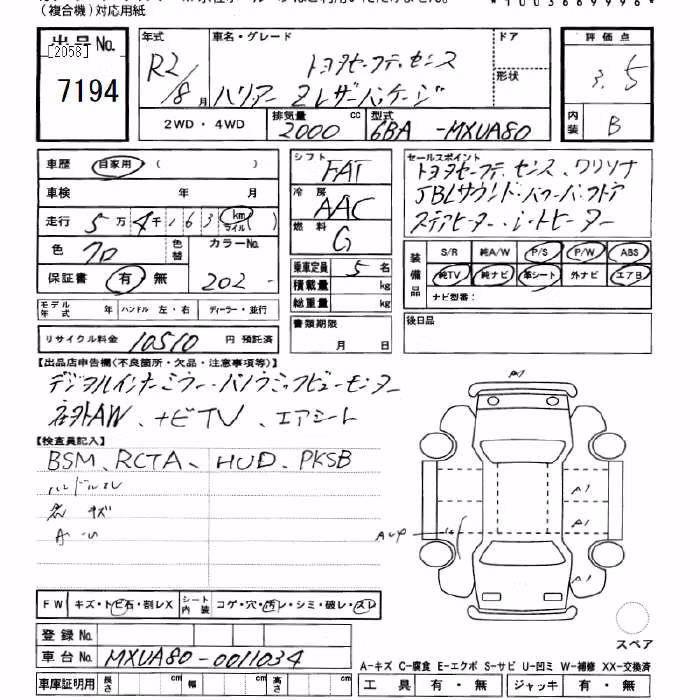 （複合機）対応用紙
*1003669996*
出品No.
[2058]
7194
年式
R2/8月
車名・グレード
トヨタセーフティセンス
ハリアー Zレザーパッケージ
ドア
形状
評価点
3.5
内装
B
2WD・4WD
排気量
2000
cc
型式
6BA -MXUA80
車歴
自家用
( )
車検 年 月
走行 5万4千163 km ( )
マイル
色
70
色替
カラーNo.
202 -
保証書 有・無
モデル年式 年
ハンドル 左・右
ディーラー・並行
リサイクル料金 10510 円 預託済
シフト
FAT
冷房
AAC
燃料
G
乗車定員 5 名
積載量 kg
総重量 kg
書類期限
月 日
セールスポイント
トヨタセーフティセンス、ワンオーナ
JBLサウンド・パワーバックドア
ステアヒーター・シートヒーター
装備品
S/R 純A/W P/S P/W ABS
純TV 純ナビ 革シート 外ナビ エアB
ナビ型番：
後日品
【出品店申告欄(不良箇所・欠品・注意事項等)】
デジタルインナーミラー・パノラミックビューモニター
社外AW、ナビTV、エアシート
【検査員記入】
BSM、RCTA、HUD、PKSB
ハンドルスレ
キズ
A・U
A1
A1
A1
A1
FW
キズ・トビ石・割レX
シート内装
コゲ・穴・汚レ・シミ・破レ・スレ
登録No.
車台No. MXUA80-0011034
車庫証明用 長さ cm 幅 cm 高さ cm
スペア
A-キズ C-腐食 E-エクボ S-サビ U-凹ミ W-補修 XX-交換済
工具 有・無
ジャッキ 有・無